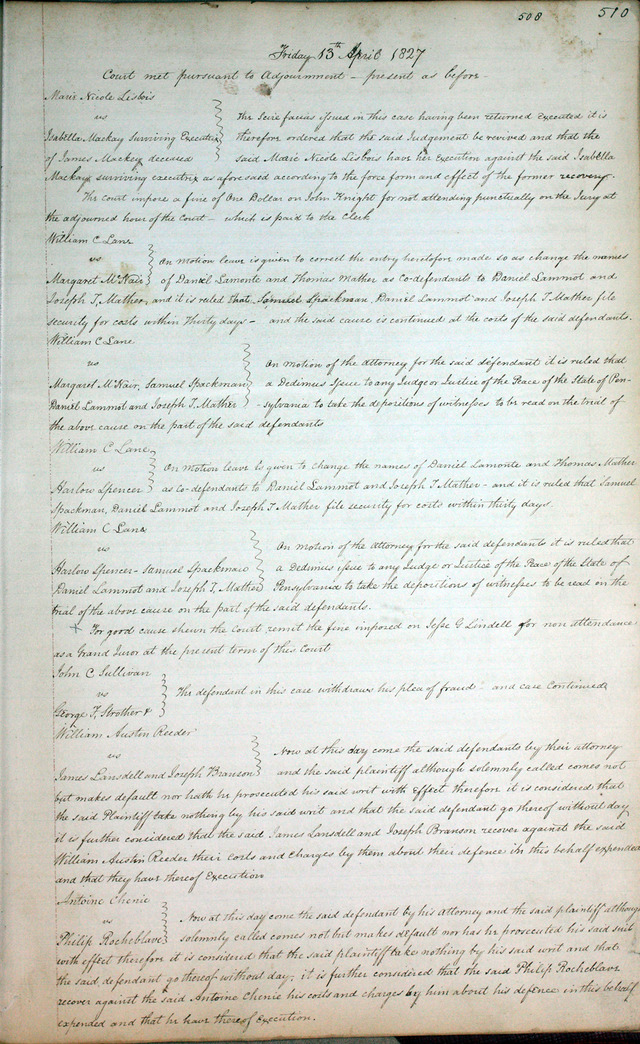 508 510
Friday 13th April 1827
Court met pursuant to Adjournment - present as before -
Marie Nicole Lesbois
vs The Scire facias issued in this case having been returned Executed it is
Isabella Mackay Surviving Executrix therefore ordered that the said Judgement be revived and that the
of James Mackey deceased said Marie Nicole Lisbois have her execution against the said Isabella
Mackay surviving executrix as aforesaid according to the force form and effect of the former recovery.
The court impose a fine of One Dollar on John Knight for not attending punctually on the Jury at
the adjourned hour of the Court - which is paid to the Clerk
William C Lane
vs On motion leave is given to correct the entry heretofore made so as change the names
Margaret McNair of Daniel Lamonte and Thomas Mather as Co-defendants to Daniel Lammot and
Joseph T. Mather, and it is ruled that Samuel Spackman, Daniel Lammot and Joseph T. Mather file
security for costs within thirty days - and the said cause is continued at the costs of the said defendants.
William C Lane
vs On motion of the attorney for the said defendant it is ruled that
Margaret McNair, Samuel Spackman a Dedimus issue to any Judge or Justice of the Peace of the State of Pen-
Daniel Lammot and Joseph T. Mather -sylvania to take the depositions of witnesses to be read on the trial of
the above cause on the part of the said defendants
William C Lane
vs On motion leave is given to change the names of Daniel Lamonte and Thomas Mather
Harlow Spencer as Co-defendants to Daniel Lammot and Joseph T. Mather - and it is ruled that Samuel
Spackman, Daniel Lammot and Joseph T. Mather file security for costs within thirty days.
William C Lane
vs On motion of the attorney for the said defendants it is ruled that
Harlow Spencer - Samuel Spackman a Dedimus issue to any Judge or Justice of the Peace of the State of
Daniel Lammot and Joseph T. Mather Pensylvania to take the depositions of witnesses to be read on the
trial of the above cause on the part of the said defendants.
For good cause shewn the Court remit the fine imposed on Jesse G Lindell for non attendance
as a Grand Juror at the present term of this Court
John C Sullivan
vs The defendant in this case withdraws his plea of fraud - and case Continued
George F. Strother &
William Austin Reeder
vs Now at this day come the said defendants by their attorney
James Lansdell and Joseph Branson and the said plaintiff although solemnly called comes not
but makes default nor hath he prosecuted his said writ with effect therefore it is considered that
the said Plaintiff take nothing by his said writ and that the said defendant go thereof without day
it is further considered that the said James Lansdell and Joseph Branson recover against the said
William Austin Reeder their costs and charges by them about their defence in this behalf expended
and that they have thereof Execution
Antoine Chenie
vs Now at this day come the said defendant by his Attorney and the said plaintiff although
Philip Rocheblave solemnly called comes not but makes default nor has he prosecuted his said suit
with effect therefore it is considered that the said plaintiff take nothing by his said writ and that
the said defendant go thereof without day; it is further considered that the said Philip Rocheblave
recover against the said Antoine Chenie his costs and charges by him about his defence in this behalf
expended and that he have thereof Execution.